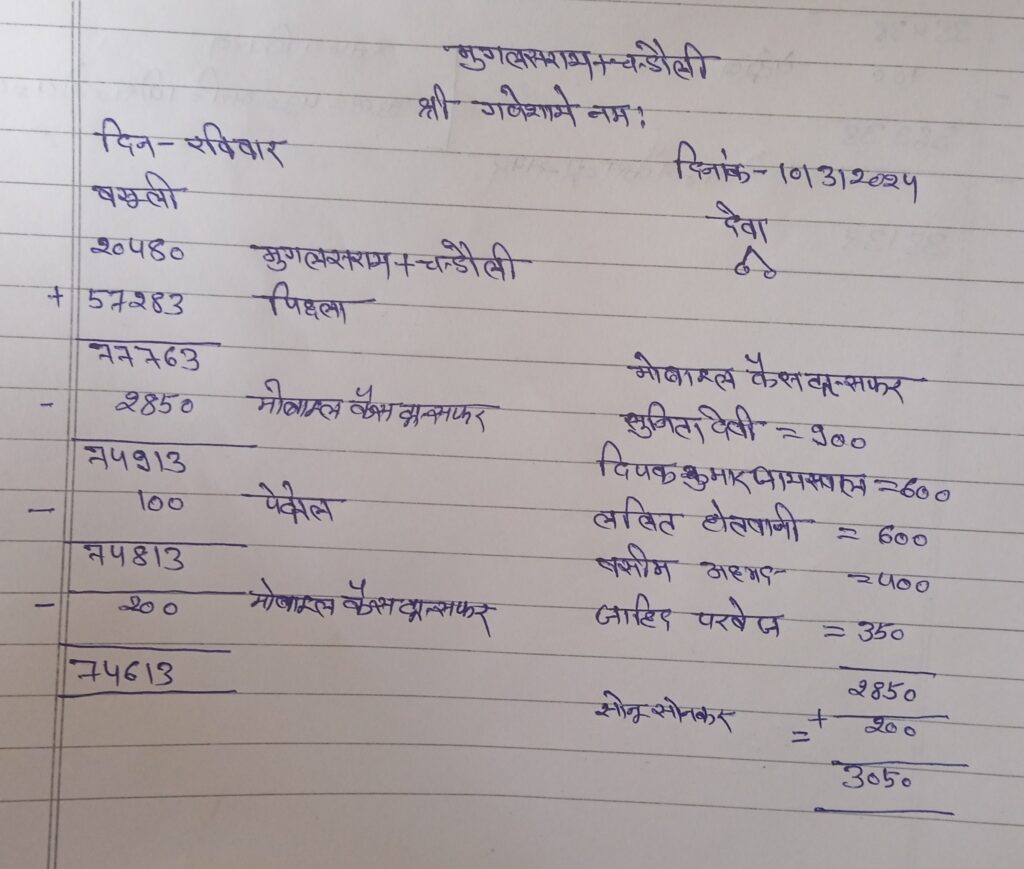 मुगलसराय+चन्डौली
श्री गणेशाये नमः
दिन- रविवार
दिनांक-10/3/2024
वसूली
देवा
20480 मुगलसराय+चन्डौली
+ 57283 पिछला
77763
- 2850 मोबाइल कैस ट्रान्सफर
74913
- 100 पेट्रोल
74813
- 200 मोबाइल कैस ट्रान्सफर
74613
मोबाइल कैस ट्रान्सफर
सुनिता देवी = 900
दिपक कुमार जायसवाल =600
ललित = 600
वसीम अहमद =400
जाहिद परवेज = 350
2850
सोनू सोनकर = + 200
3050